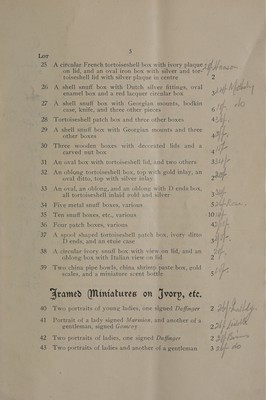 3
Lot
25 A circular French tortoiseshell box with ivory plaque on lid, and an oval iron box with silver and tortoiseshell lid with silver plaque in centre 2
26 A shell snuff box with Dutch silver fittings, oval enamel box and a red lacquer circular box
27 A shell snuff box with Georgian mounts, bodkin case, knife, and three other pieces 6
28 Tortoiseshell patch box and three other boxes 4
29 A shell snuff box with Georgian mounts and three other boxes 4
30 Three wooden boxes with decorated lids and a carved nut box 4
31 An oval box with tortoiseshell lid, and two others 3
32 An oblong tortoiseshell box, top with gold inlay, an oval ditto, top with silver inlay
33 An oval, an oblong, and an oblong with D ends box, all tortoiseshell inlaid gold and silver 3
34 Five metal snuff boxes, various
35 Ten snuff boxes, etc., various 10
36 Four patch boxes, various 4
37 A wood shaped tortoiseshell patch box, ivory ditto D ends, and an etuie case
38 A circular ivory snuff box with view on lid, and an oblong box with Italian view on lid 2
39 Two china pipe bowls, china shrimp paste box, gold scales, and a miniature scent bottle
Framed Miniatures on Ivory, etc.
40 Two portraits of young ladies, one signed Daffinger 2
41 Portrait of a lady signed and another of a gentleman, signed 2
42 Two portraits of ladies, one signed Daffinger 2
43 Two portraits of ladies and another of a gentleman 3